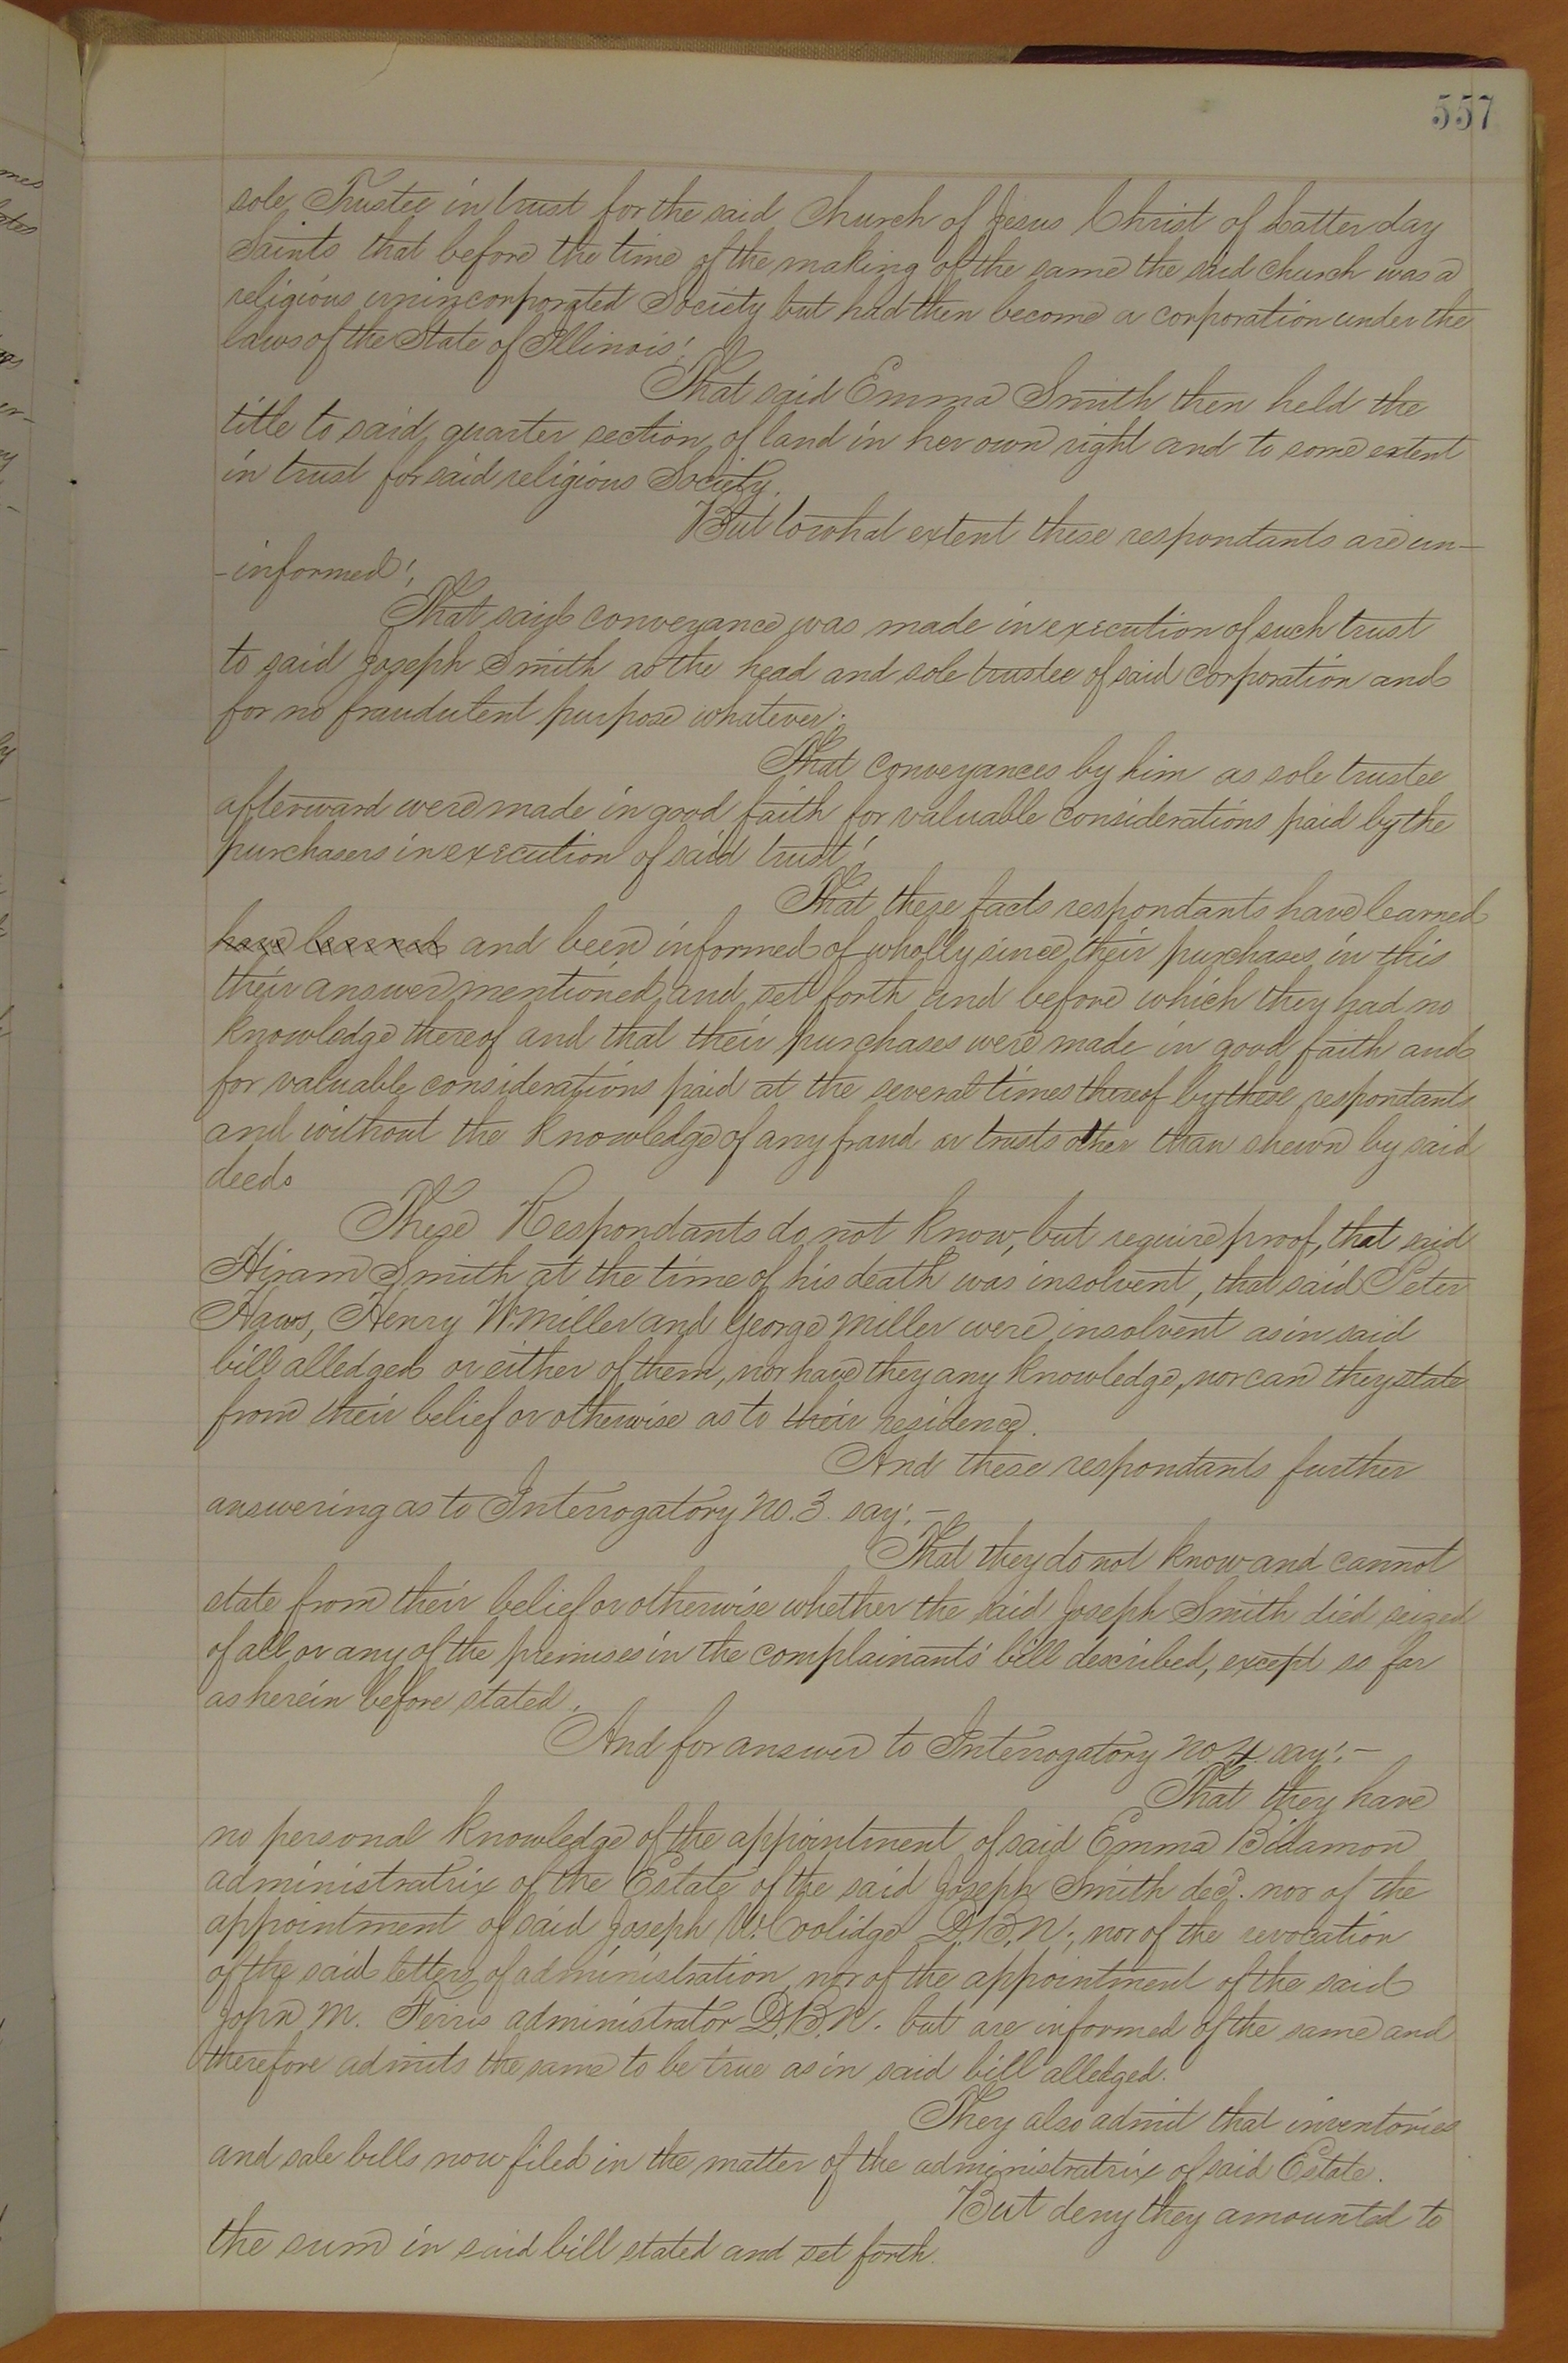 557
sole Trustee in trust for the said Church of Jesus Christ of Latter day
Saints that before the time of the making of the same the said church was a
religious unincorporated Society but had then become a corporation under the
laws of the State of Illinois;
That said Emma Smith then held the
title to said quarter section of land in her own right and to some extent
in trust for said religious Society.
But to what extent these respondants are un-
-informed;
That said conveyance was made in execution of such trust
to said Joseph Smith as the head and sole trustee of said corporation and
for no fraudulent purpose whatever;
That conveyances by him as sole trustee
afterward were made in good faith for valuable considerations paid by the
purchasers in execution of said trust;
That these facts respondants have learned
have learned and been informed of wholly since their purchases in this
their answer mentioned and set forth and before which they had no
knowledge thereof and that their purchases were made in good faith and
for valuable considerations paid at the several times thereof by these respondants
and without the knowledge of any fraud or trusts other than shewn by said
deeds
These Respondants do not know, but require proof, that said
Hiram Smith at the time of his death was insolvent, that said Peter
Haws, Henry W. Miller and George Miller were insolvent as in said
bill alledged or either of them, nor have they any knowledge, nor can they state
from their belief or otherwise as to their residence.
And these respondants further
answering as to Interrogatory No. 3. say;-
That they do not know and cannot
state from their belief or otherwise whether the said Joseph Smith died seized
of all or any of the premises in the complainants' bill described, except so far
as herein before stated.
And for answer to Interrogatory No. 4. say;-
That they have
no personal knowledge of the appointment of said Emma Bidamon
administratrix of the Estate of the said Joseph Smith decd. nor of the
appointment of said Joseph W. Coolidge D.B.N; nor of the revocation
of the said letters of administration, nor of the appointment of the said
John M. Ferris administrator D.B.N. but are informed of the same and
therefore admits the same to be true as in said bill alledged.
They also admit that inventories
and sale bills now filed in the matter of the administratrix of said Estate.
But deny they amounted to
the sum in said bill stated and set forth.